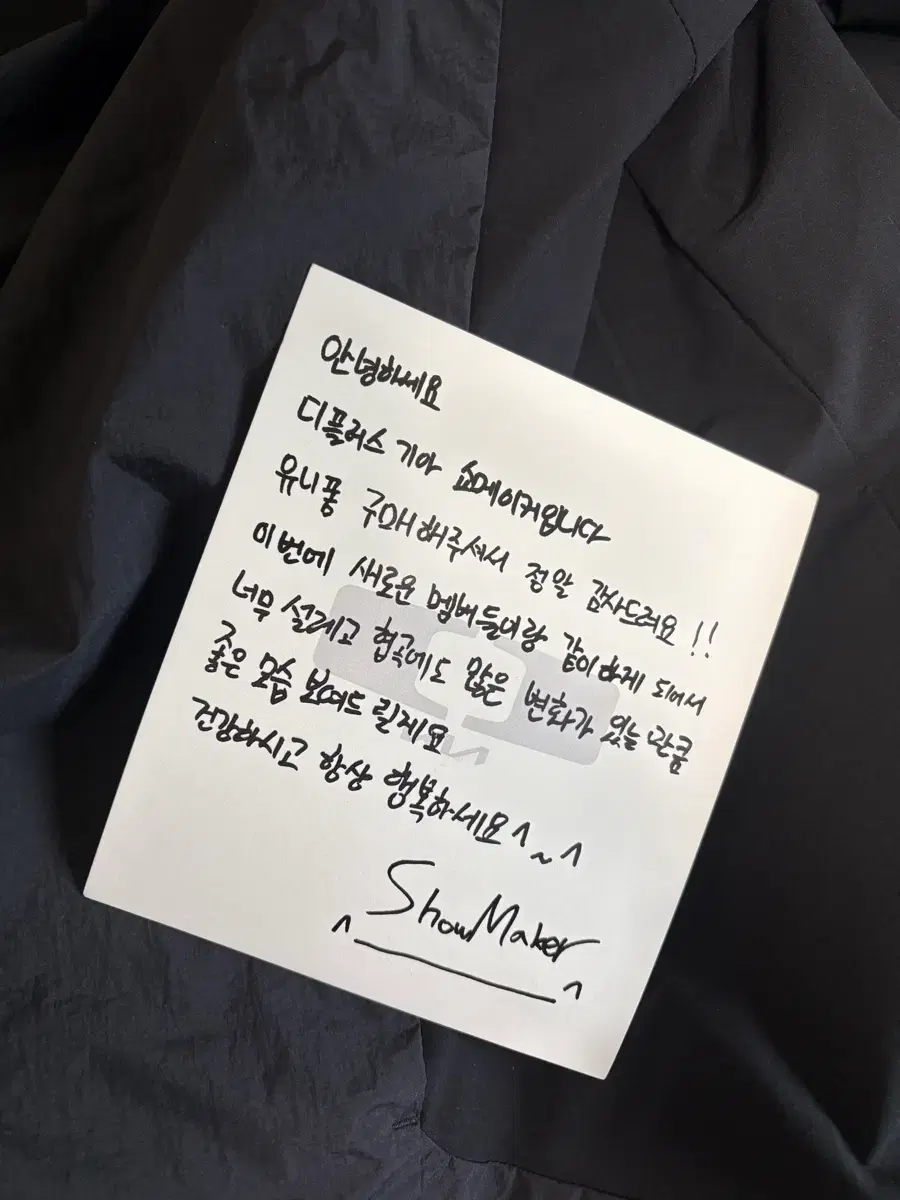 안녕하세요
디플러스 기아 쇼메이커입니다
유니폼 구매해주셔서 정말 감사드려요 !!
이번에 새로운 멤버들이랑 같이하게 되어서
너무 설레고 협곡에도 많은 변화가 있는 만큼
좋은 모습 보여드릴게요
건강하시고 항상 행복하세요 ^~^
ShowMaker
^___^